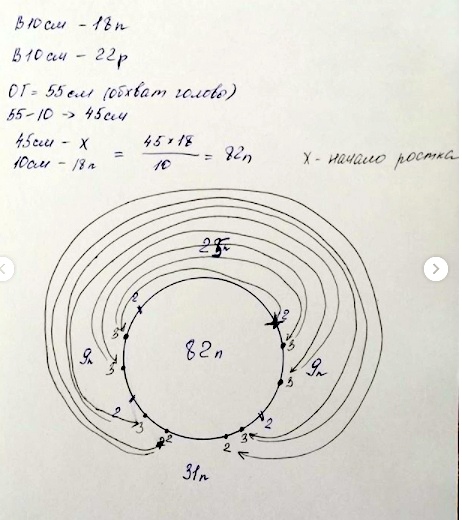 В 10 см – 18 п
В 10 см – 22 р
ОГ = 55 см (обхват головы)
55-10 → 45 см
45 см – х
10 см – 18 п
= 45 × 18 / 10 = 82 п
Х - начало ростка
2
2
3
3
9 п
82 п
3
9 п
3
3
2
2
3
2
2
31 п